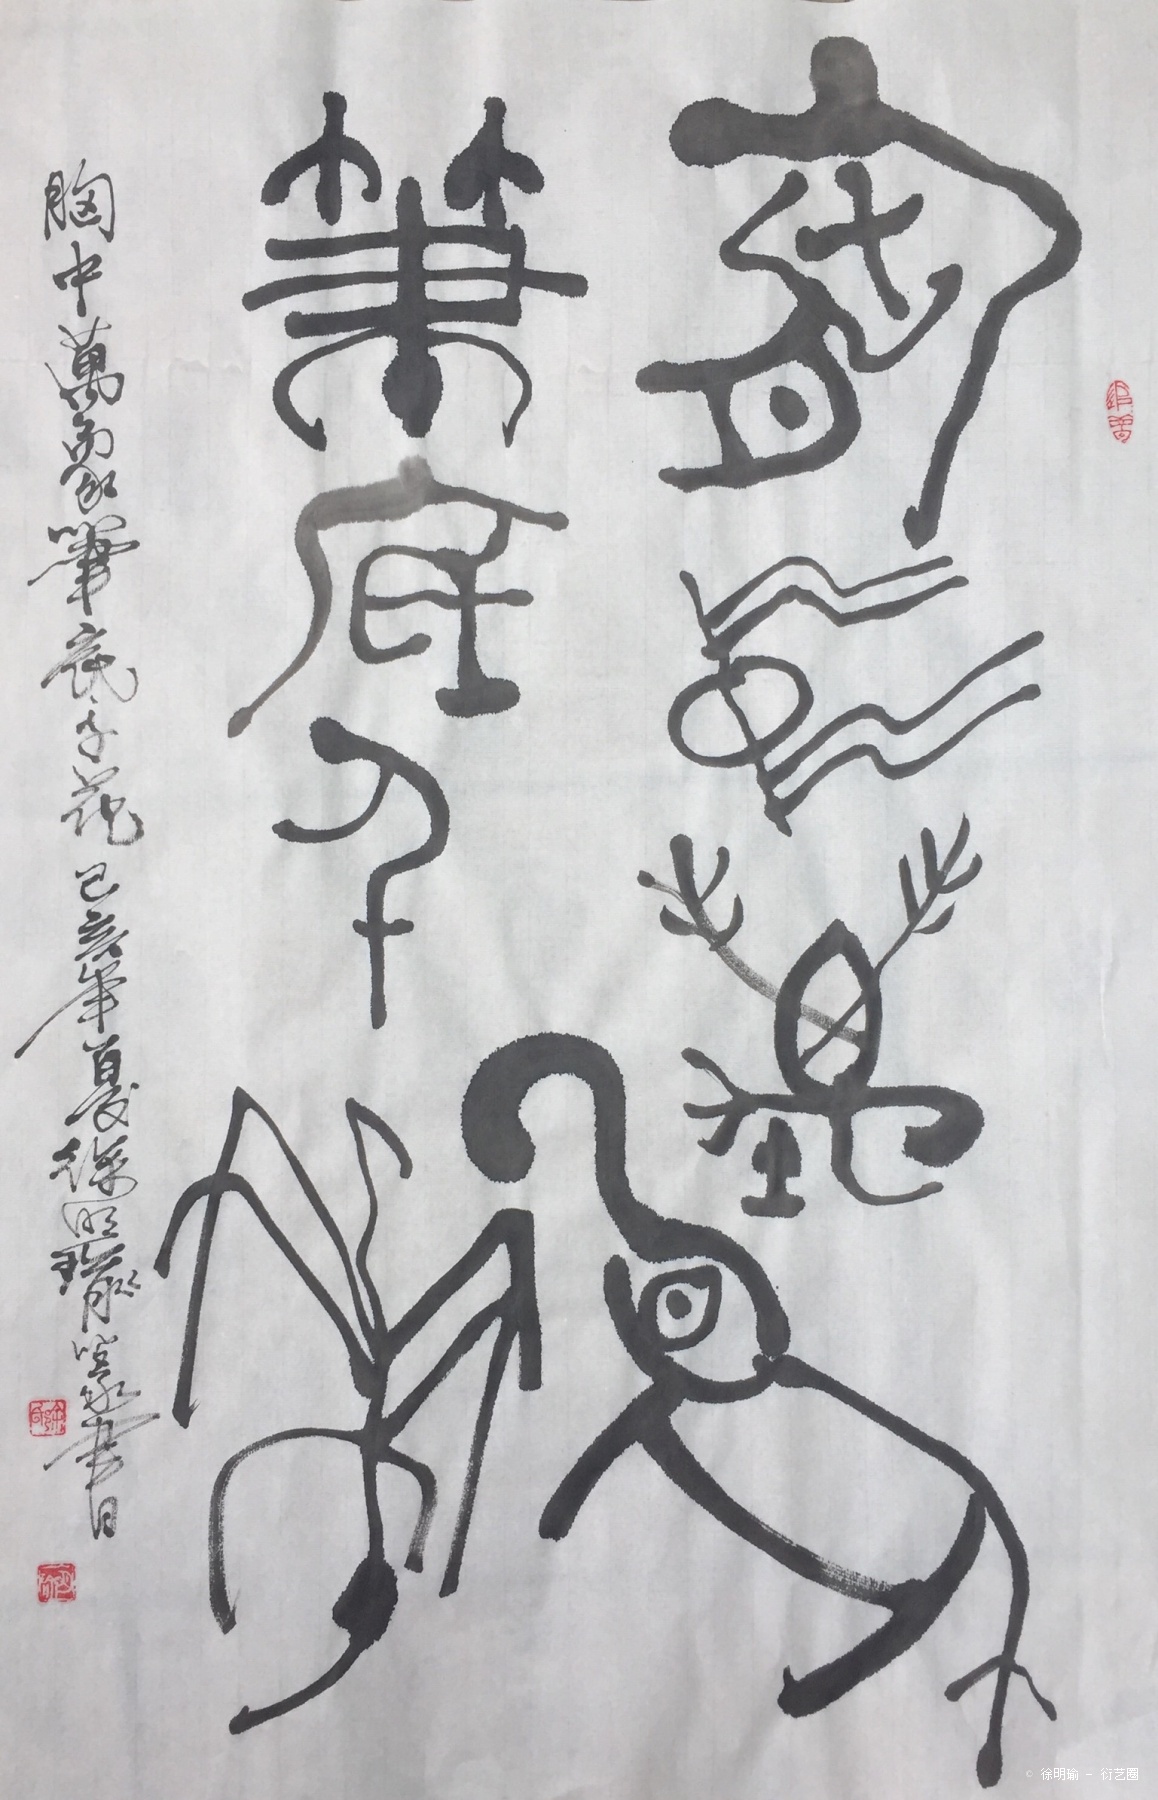 胸中萬象
筆底千花
胸中萬象筆底千花己亥年首夏徐明瑜篆書
© 徐明瑜 - 衍艺圈